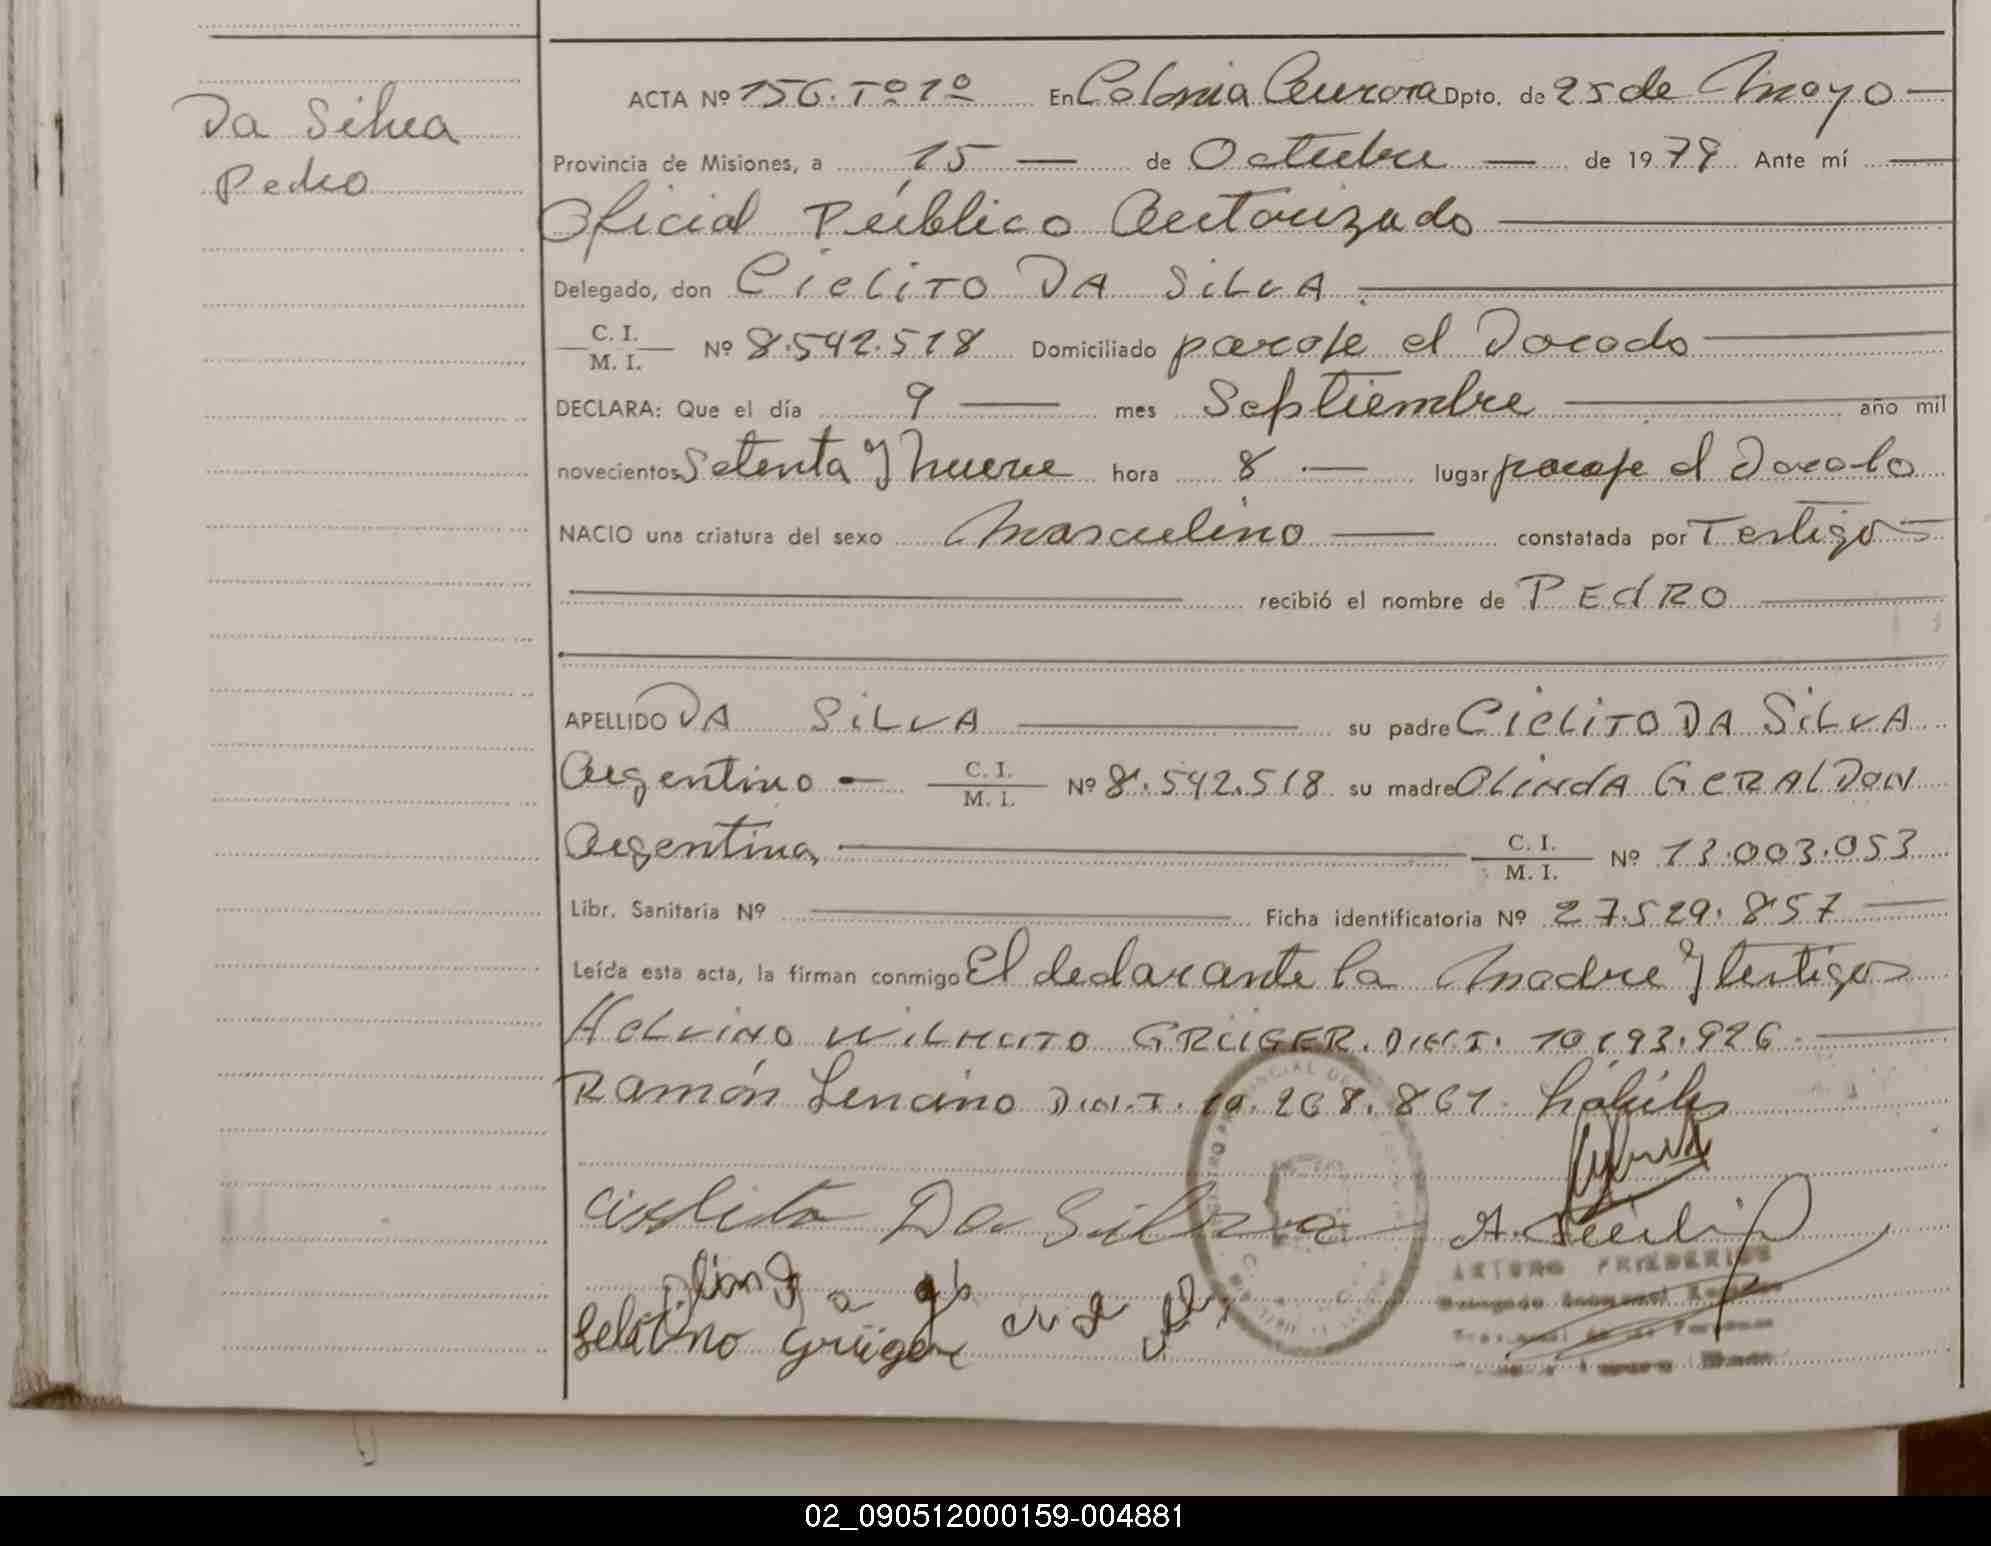 Da Silva
Pedro
ACTA Nº 156. Tº 1º En Colonia Aurora Dpto. de 25 de Mayo
Provincia de Misiones, a 15 de Octubre de 1979 Ante mí
Oficial Público Autorizado
Delegado, don Cielito DA SILVA
C. I.
M. I.
Nº 8.542.518 Domiciliado paraje el Dorado
DECLARA: Que el día 9 mes Septiembre año mil
novecientos Setenta y nueve hora 8 lugar paraje el Dorado
NACIO una criatura del sexo Masculino constatada por Testigos
recibió el nombre de PEDRO
APELLIDO DA SILVA su padre CIELITO DA SILVA
Argentino C. I.
M. I.
Nº 8.542.518 su madre OLINDA GERALDON
Argentina, C. I.
M. I.
Nº 13.003.053
Libr. Sanitaria Nº Ficha identificatoria Nº 27.529.857
Leída esta acta, la firman conmigo El declarante la Madre y testigos
GRÜGER. D.N.I. 10.193.926
Ramón D.N.I. 268.861 hábiles
Cielito Da Silva
grüger
ARTURO FRIEDERICH
02_090512000159-004881